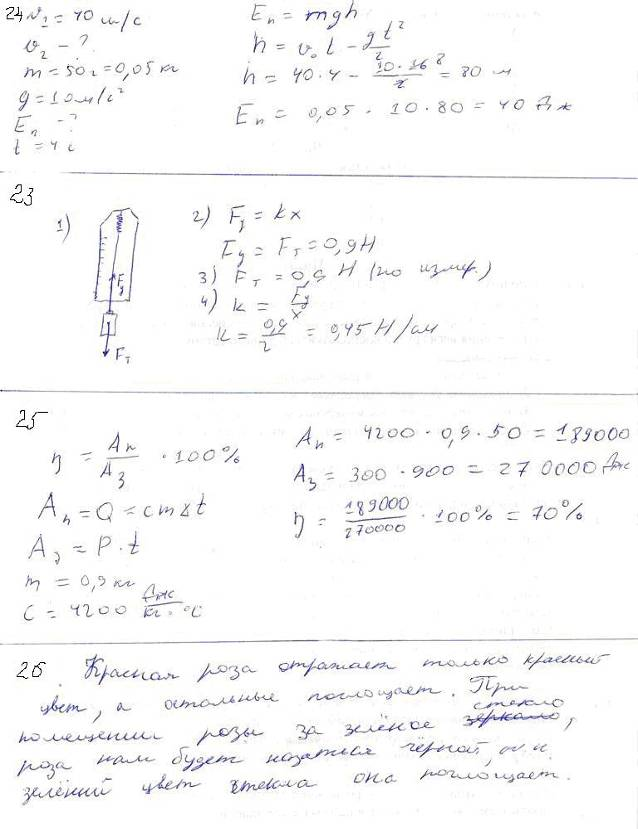 24 v₁ = 40 м/с
v₂ - ?
m = 50 г = 0,05 кг
g = 10 м/с²
Eп - ?
t = 4 с
Eп = mgh
h = v₀t - gt²/2
h = 40·4 - 10·16/2 = 80 м
Eп = 0,05 · 10·80 = 40 Дж
23
1)
Fу
Fт
2) Fу = kx
Fу = Fт = 0,9 Н
3) Fт = 0,9 Н (по измер.)
4) k = Fу/x
k = 0,9/2 = 0,45 Н/см
25
η = Aп/Aз · 100%
Aп = Q = cmΔt
Aз = P·t
m = 0,9 кг
c = 4200 Дж/кг·°C
Aп = 4200 · 0,9 · 50 = 189000
Aз = 300 · 900 = 270000 Дж
η = 189000/270000 · 100% = 70%
26. Красная роза отражает только красный
цвет, а остальные поглощает. При
помещении розы за зелёное стекло,
роза нам будет казаться чёрной, т.к.
зелёный цвет стекла она поглощает.